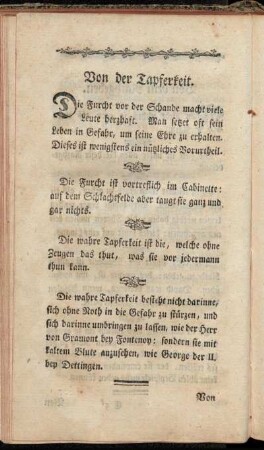 Von der Tapferkeit.
Die Furcht vor der Schande macht viele
Leute herzhaft. Man setzet oft sein
Leben in Gefahr, um seine Ehre zu erhalten.
Dieses ist wenigstens ein nützliches Vorurtheil.
Die Furcht ist vortreflich im Cabinette:
auf dem Schlachtfelde aber taugt sie ganz und
gar nichts.
Die wahre Tapferkeit ist die, welche ohne
Zeugen das thut, was sie vor jedermann
thun kann.
Die wahre Tapferkeit besteht nicht darinne,
sich ohne Noth in die Gefahr zu stürzen, und
sich darinne umbringen zu lassen, wie der Herr
von Gramont bey Fontenoy: sondern sie mit
kaltem Blute anzusehen, wie George der II.
bey Dettingen.
Von